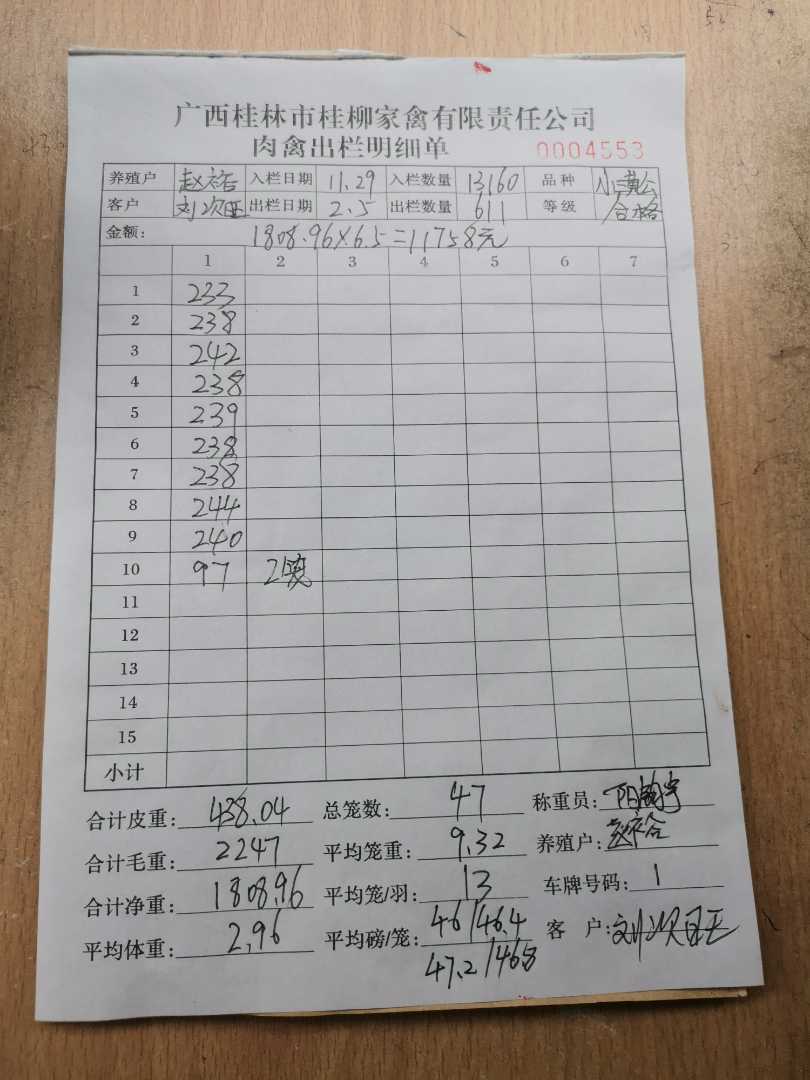 广西桂林市桂柳家禽有限责任公司
肉禽出栏明细单 0004553
养殖户 赵裕 入栏日期 11.29 入栏数量 13160 品种 小黄公
客户 刘次旺 出栏日期 2.5 出栏数量 611 等级 合格
金额: 1808.96×6.5=11758元
1 2 3 4 5 6 7
1 233
2 238
3 242
4 238
5 239
6 238
7 238
8 244
9 240
10 97 2笼
11
12
13
14
15
小计
合计皮重: 438.04 总笼数: 47 称重员:
合计毛重: 2247 平均笼重: 9.32 养殖户: 赵裕
合计净重: 1808.96 平均笼/羽: 13 车牌号码: 1
平均体重: 2.96 平均磅/笼: 46/46.4 客户: 刘次旺
47.2/46.8